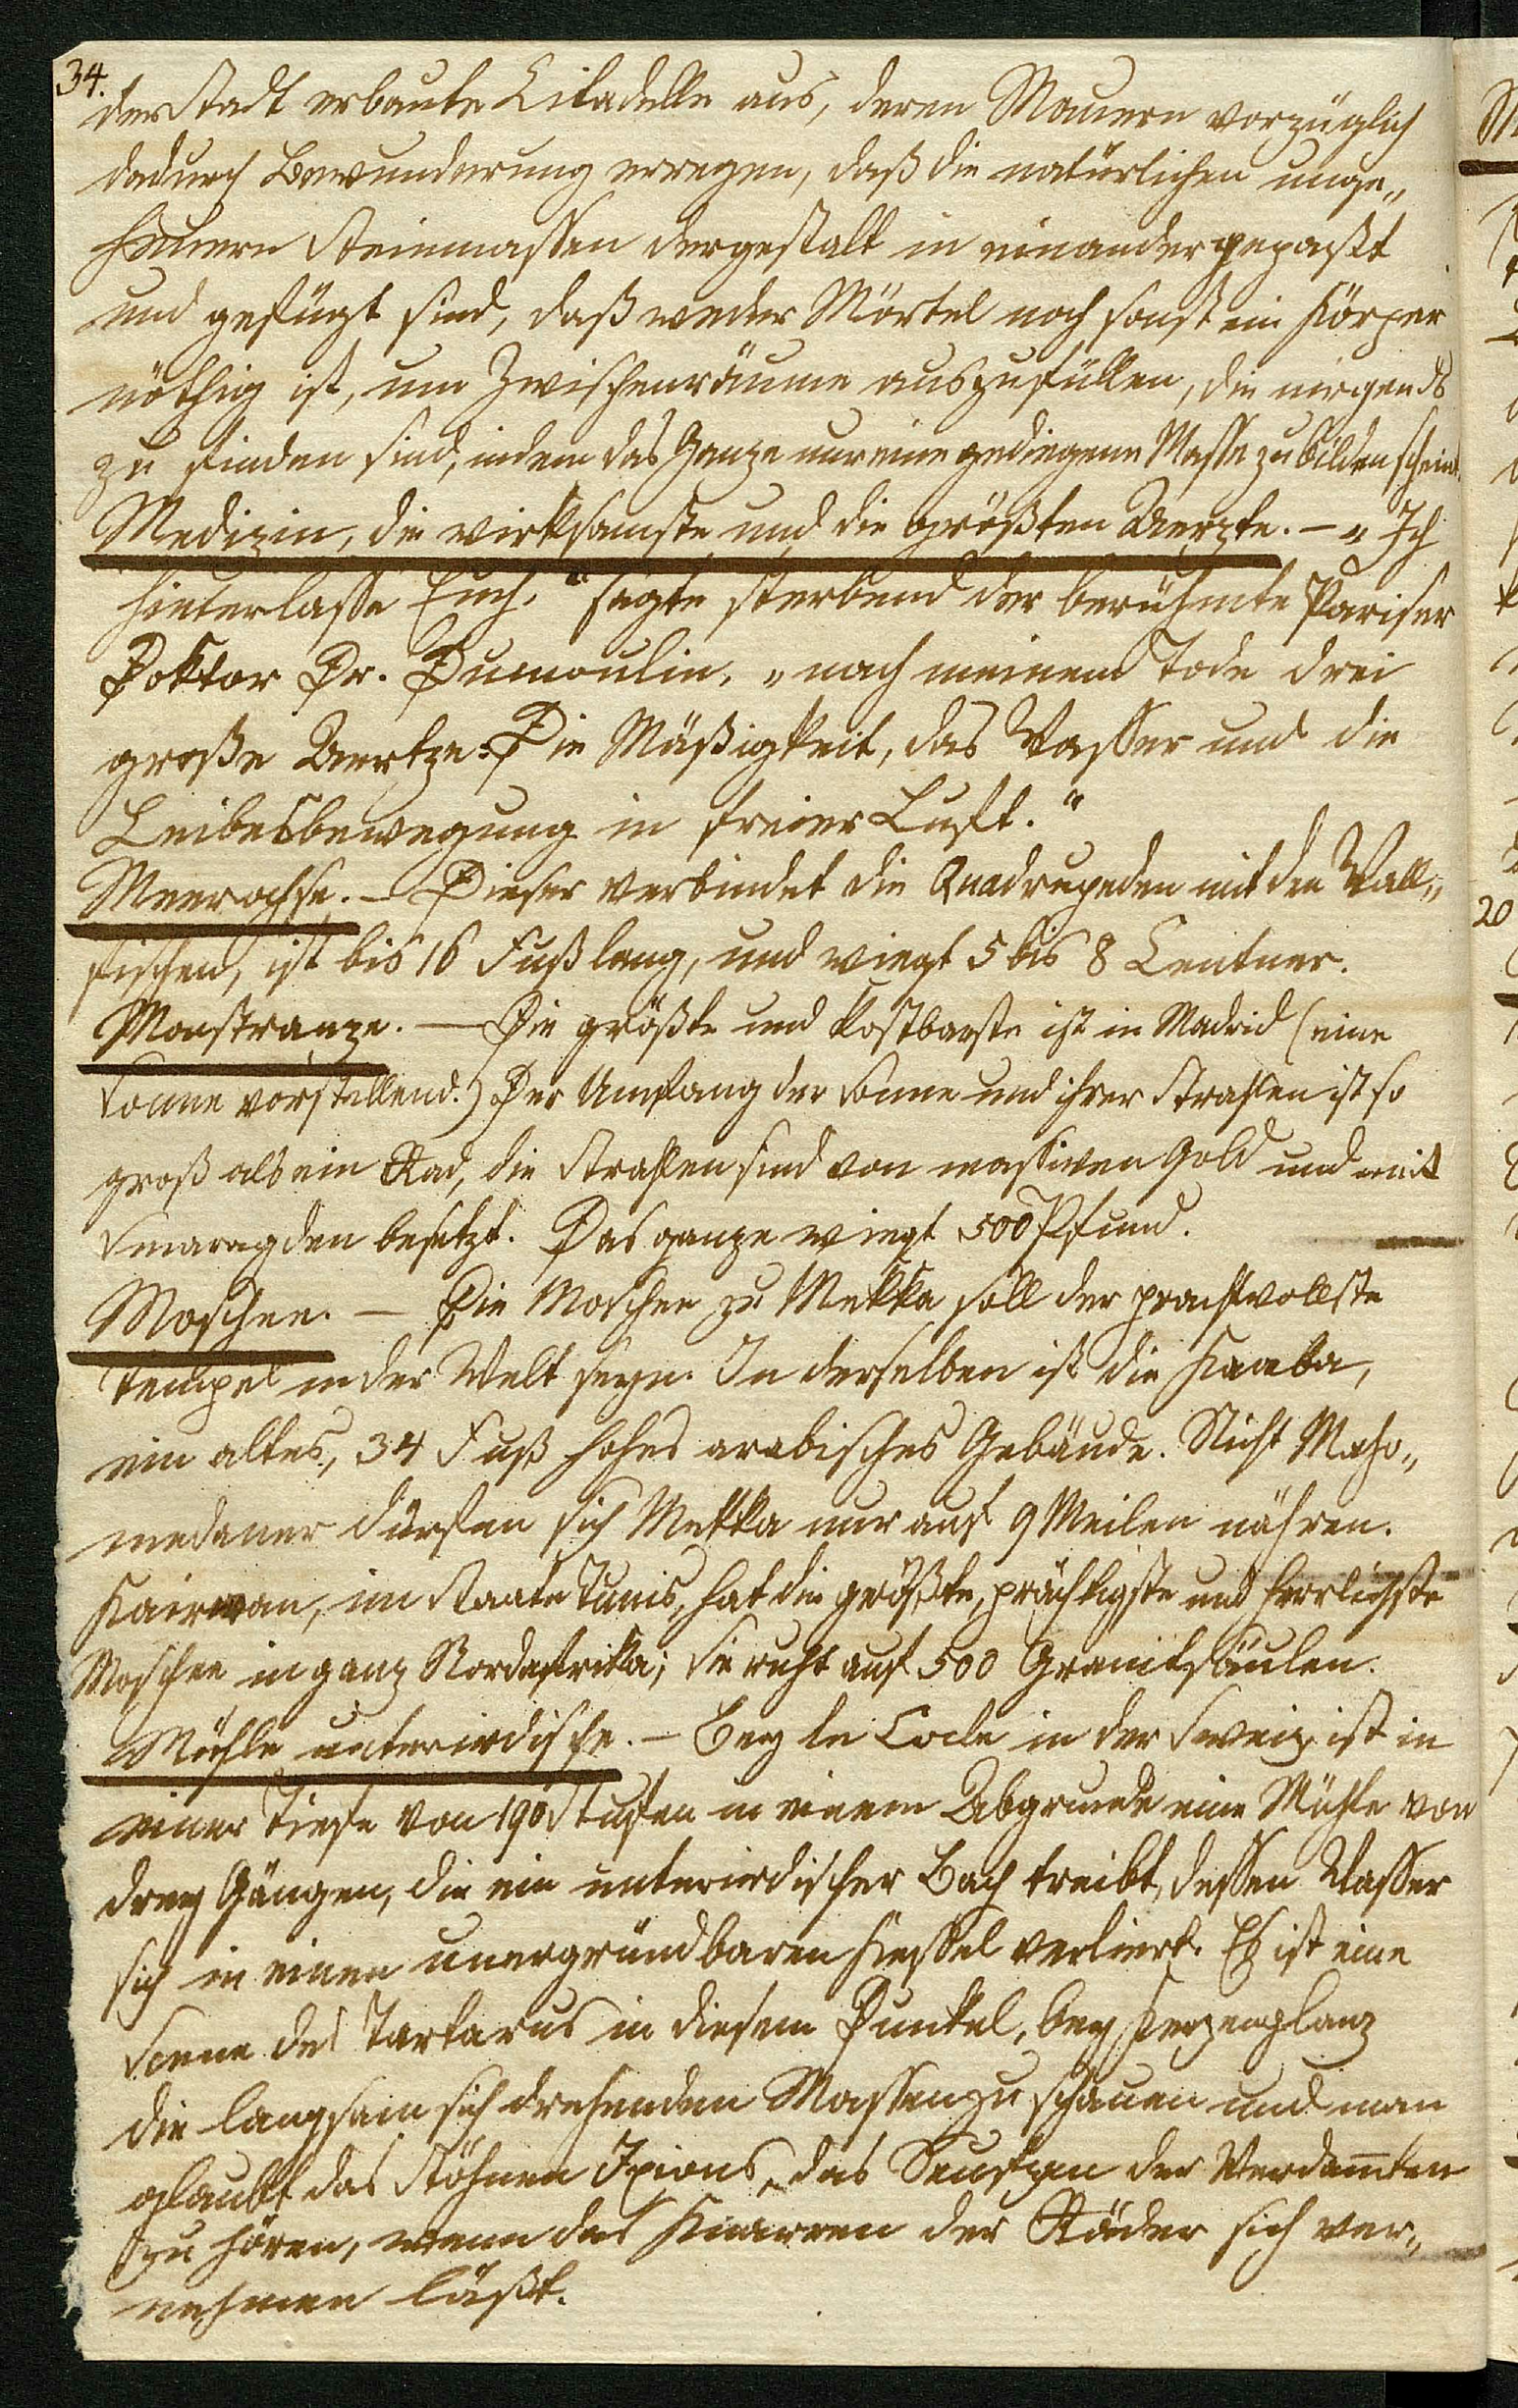 34.
der Stadt erbaute Citadelle aus, deren Mauern vorzüglich
dadurch Bewunderung erregen, daß die natürlichen unge„
heuern Steinmassen dergestalt in einander gepaßt
und gefügt sind, daß weder Mörtel noch sonst ein Körper
nöthig ist, um Zwischenräume auszufüllen, die nirgends
zu finden sind, indem das Ganze nur eine gediegene Masse zu bilden scheint.
Medizin, die wirksamste und die größten Aerzte. – „Ich
hinterlasse Euch," sagte sterbend der berühmte Pariser
Doktor Dr. Dumoulin, „nach meinem Tode drei
große Aertze: Die Mäßigkeit, das Wasser und die
Leibesbewegung in freier Luft."
Meerochse. – Dieser verbindet die Quadrupeden mit den Wall„
fischen, ist bis 16 Fuß lang, und wiegt 5 bis 8 Centner.
Monstranze. – Die größte und kostbarste ist in Madrid (eine
Sonne vorstellend.) Der Umfang der Sonne und ihrer Strahlen ist so
groß als ein Rad, die Strahlen sind von massiven Gold und mit
Smaragden besetzt. Das ganze wiegt 500 Pfund.
Moschee. – Die Moschee zu Mekka soll der prachtvollste
Tempel in der Welt seyn. In derselben ist die Kaaba,
ein altes, 34 Fuß hohes arabisches Gebäude. Nicht Maho„
medaner dürfen sich Mekka nur auf 9 Meilen nähren.
Kairwan, im Staate Tunis, hat die größte, prächtigste und herrlichste
Moschee in ganz Nordafrika; sie ruht auf 500 Granitsäulen.
Mühle unterirdische. – Bey le Locle in der Sweiz ist in
einer Tiefe von 190 Stufen in einem Abgrunde eine Mühle von
drey Gängen, die ein unterirdischer Bach treibt, dessen Wasser
sich in einen unergründbaren Kessel verliert. Es ist eine
Scene des Tartarus in diesem Dunkel, bey Kerzenglanz
die langsam sich drehenden Massen zu schauen und man
glaubt das Stöhnen Ixions, das Seufzen der Verdam̅ten
zu hören, wenn das Knarren der Räder sich ver„
nehmen läßt.
20